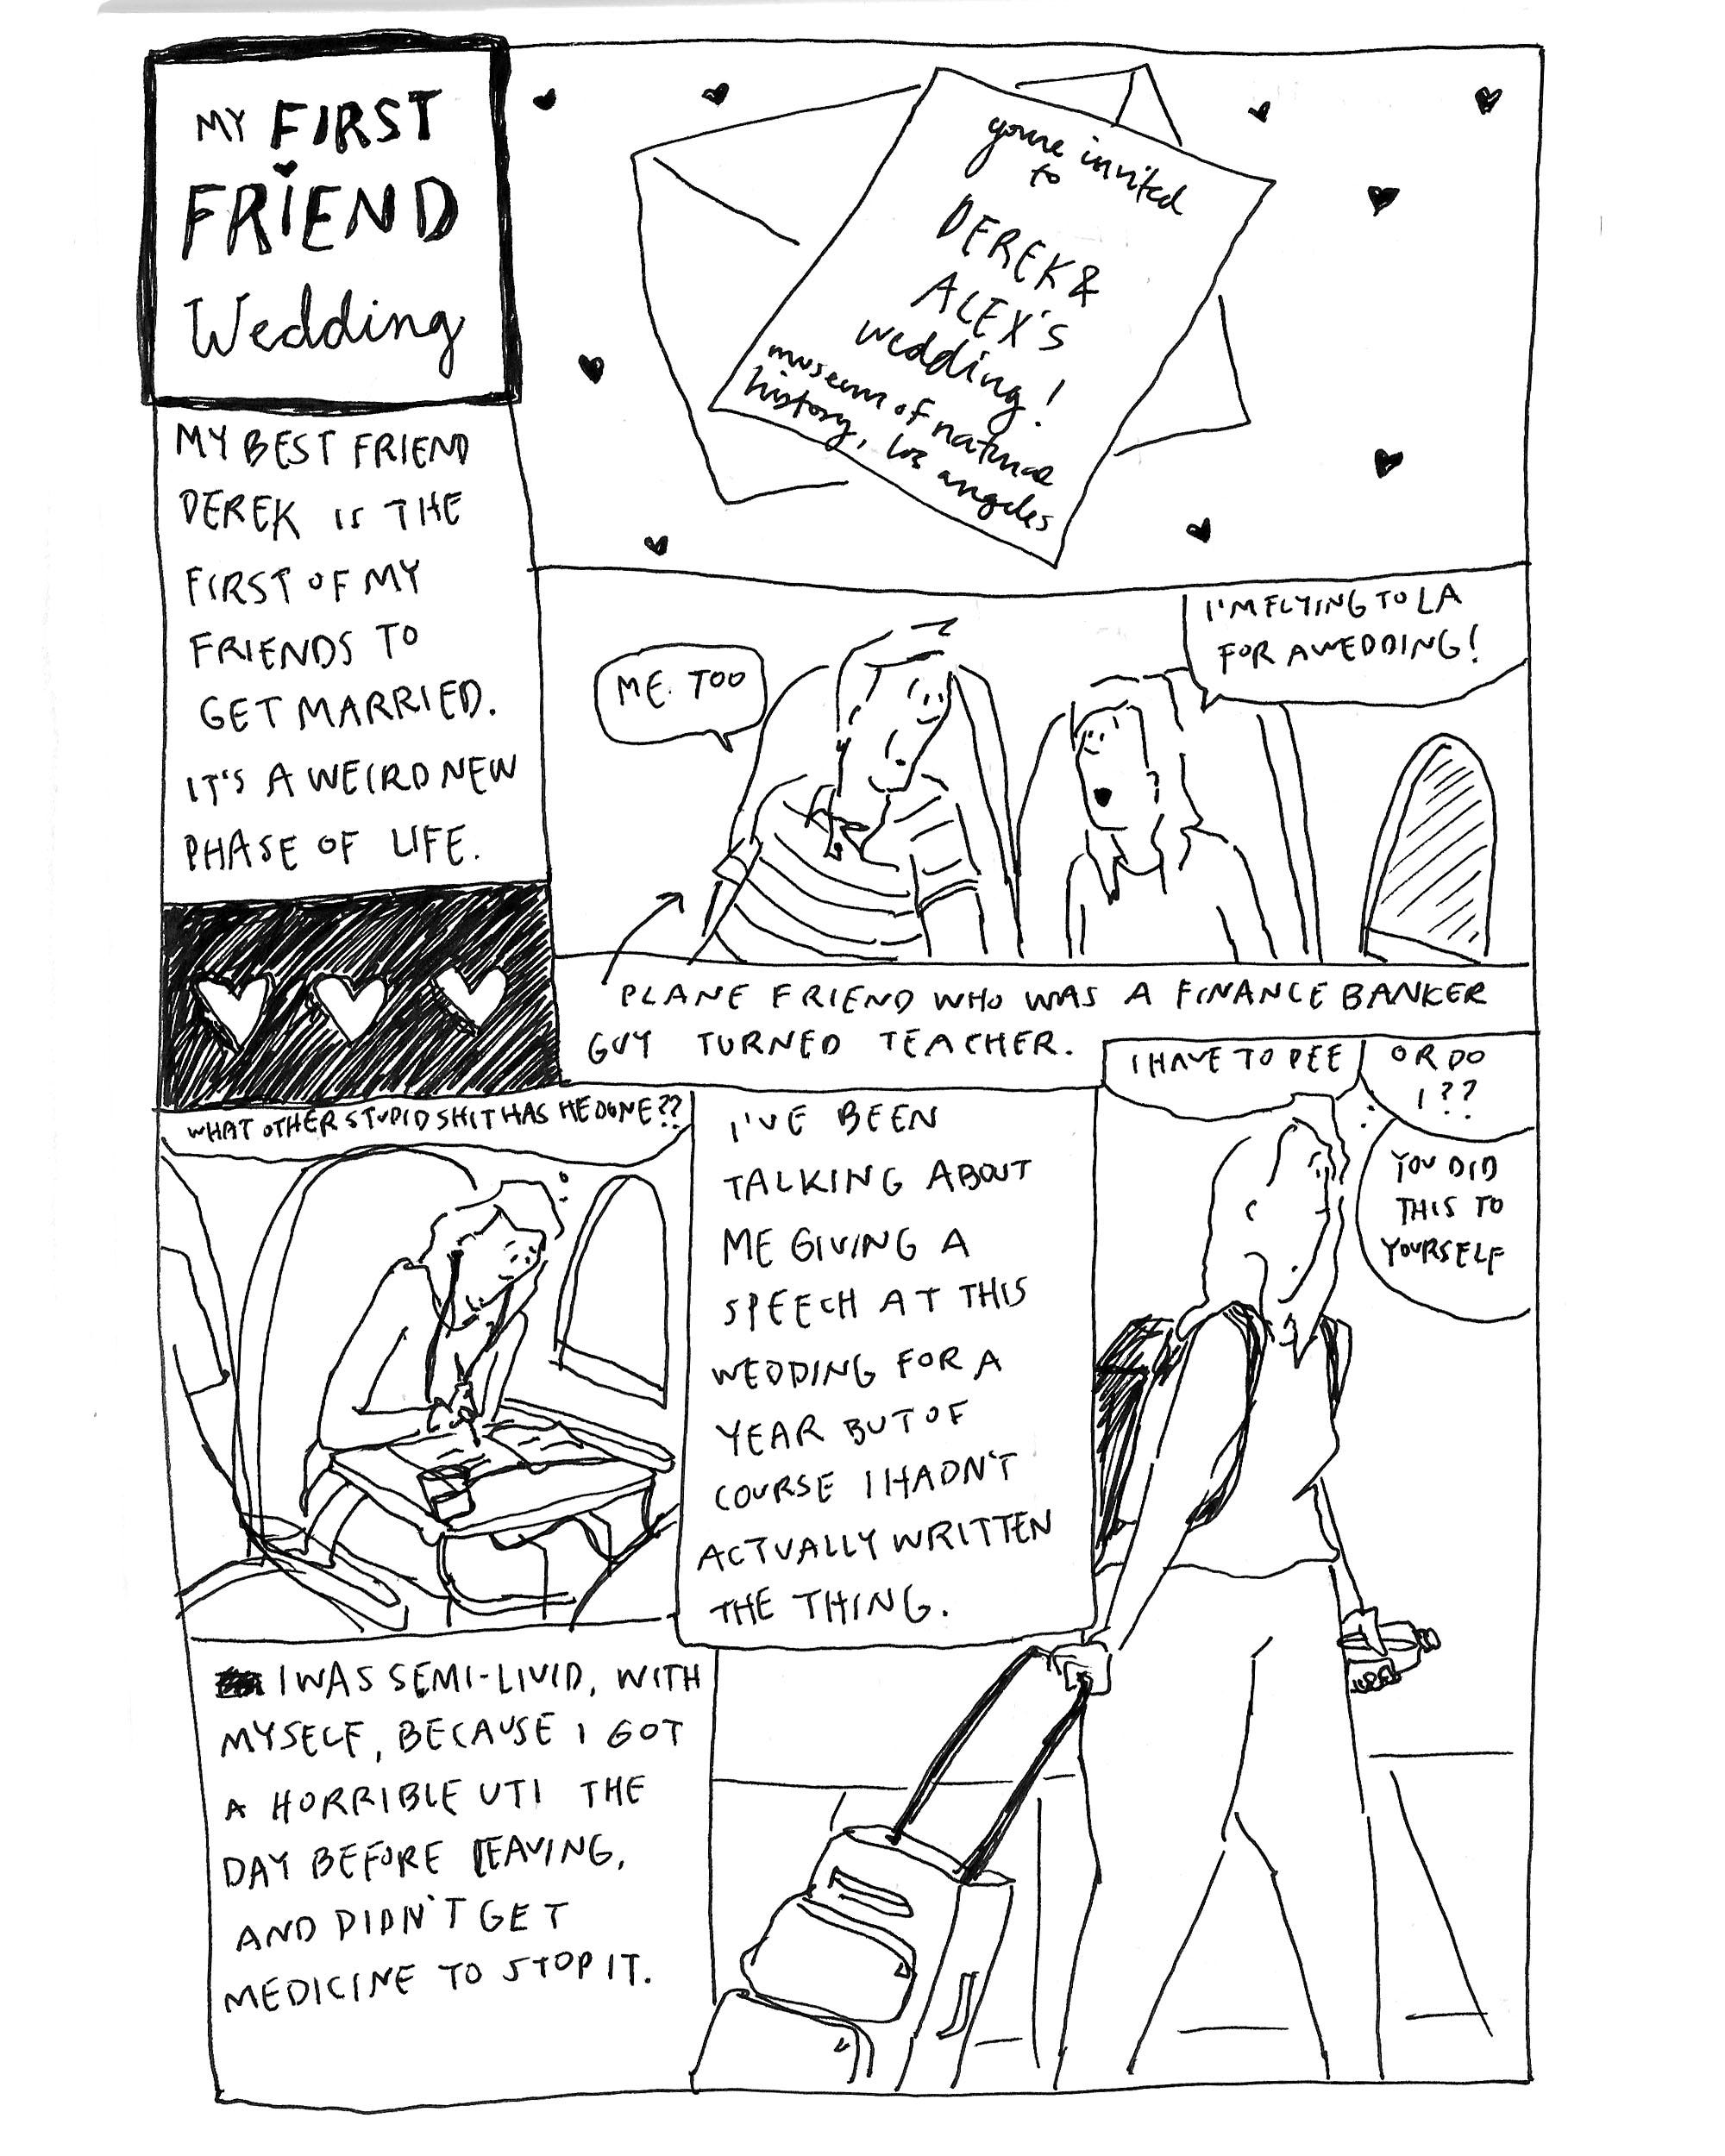 MY FIRST
FRIEND
Wedding
you're invited
to
DEREK &
ALEX'S
wedding!
museum of natural
history, los angeles
MY BEST FRIEND
DEREK IS THE
FIRST OF MY
FRIENDS TO
GET MARRIED.
IT'S A WEIRD NEW
PHASE OF LIFE.
I'M FLYING TO LA
FOR A WEDDING!
ME TOO
PLANE FRIEND WHO WAS A FINANCE BANKER
GUY TURNED TEACHER.
WHAT OTHER STUPID SHIT HAS HE DONE??
I'VE BEEN
TALKING ABOUT
ME GIVING A
SPEECH AT THIS
WEDDING FOR A
YEAR BUT OF
COURSE I HADN'T
ACTUALLY WRITTEN
THE THING.
I HAVE TO PEE
OR DO
I??
YOU DID
THIS TO
YOURSELF
I WAS SEMI-LIVID, WITH
MYSELF, BECAUSE I GOT
A HORRIBLE UTI THE
DAY BEFORE LEAVING,
AND DIDN'T GET
MEDICINE TO STOP IT.